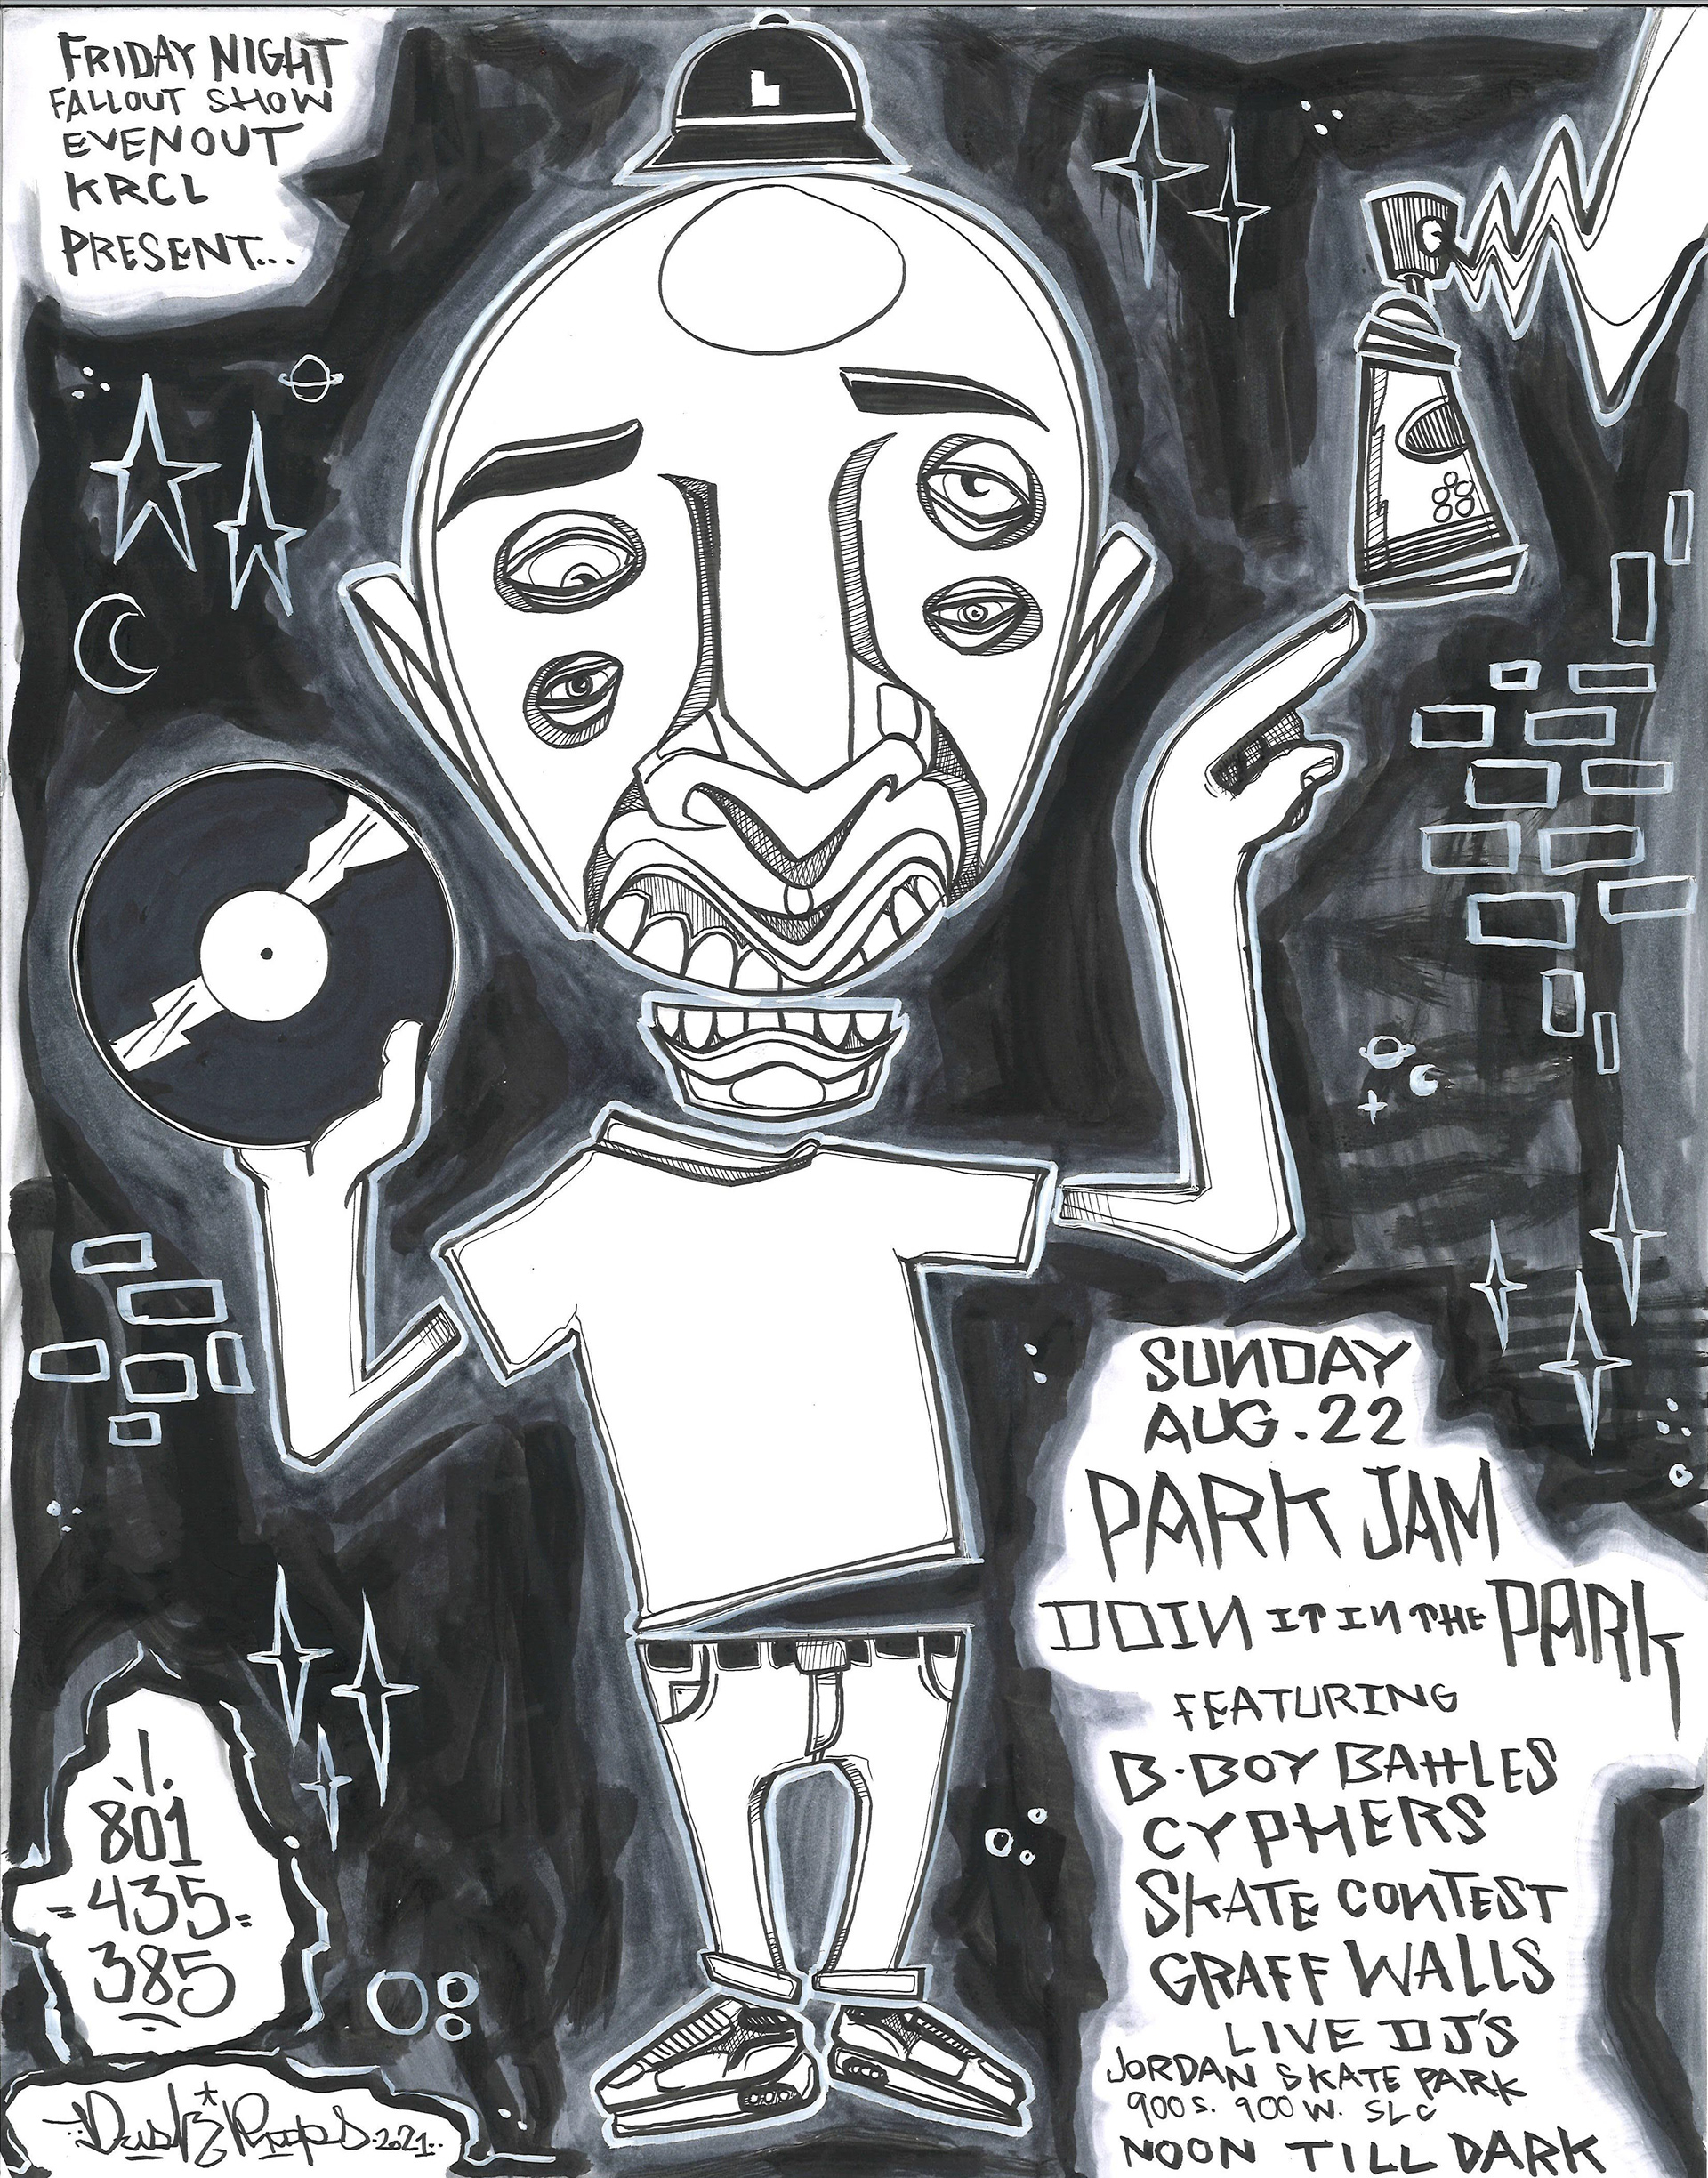 FRIDAY NIGHT
FALLOUT SHOW
EVENOUT
KRCL
PRESENT...
L
SUNDAY
AUG. 22
PARK JAM
DOIN IT IN THE PARK
FEATURING
B-BOY BATTLES
CYPHERS
SKATE CONTEST
GRAFF WALLS
LIVE DJ'S
JORDAN SKATE PARK
900 S. 900 W. SLC
NOON TILL DARK
801
435
385
2021